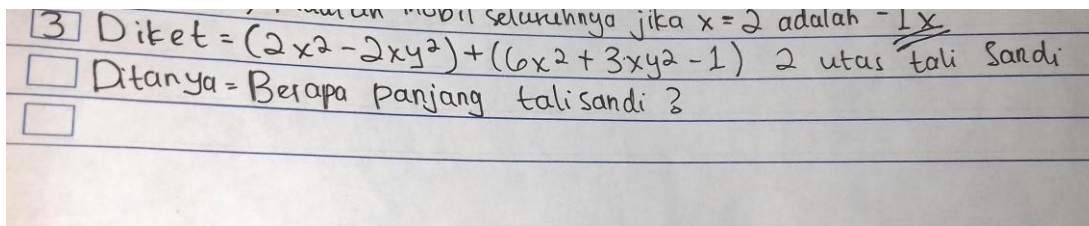 mobil seluruhnya jika x = 2 adalah -1x
3 Diket = (2x2 - 2xy²) + ((6x2 + 3xy2 - 1) 2 utas tali Sandi
Ditanya = Berapa panjang tali sandi ?